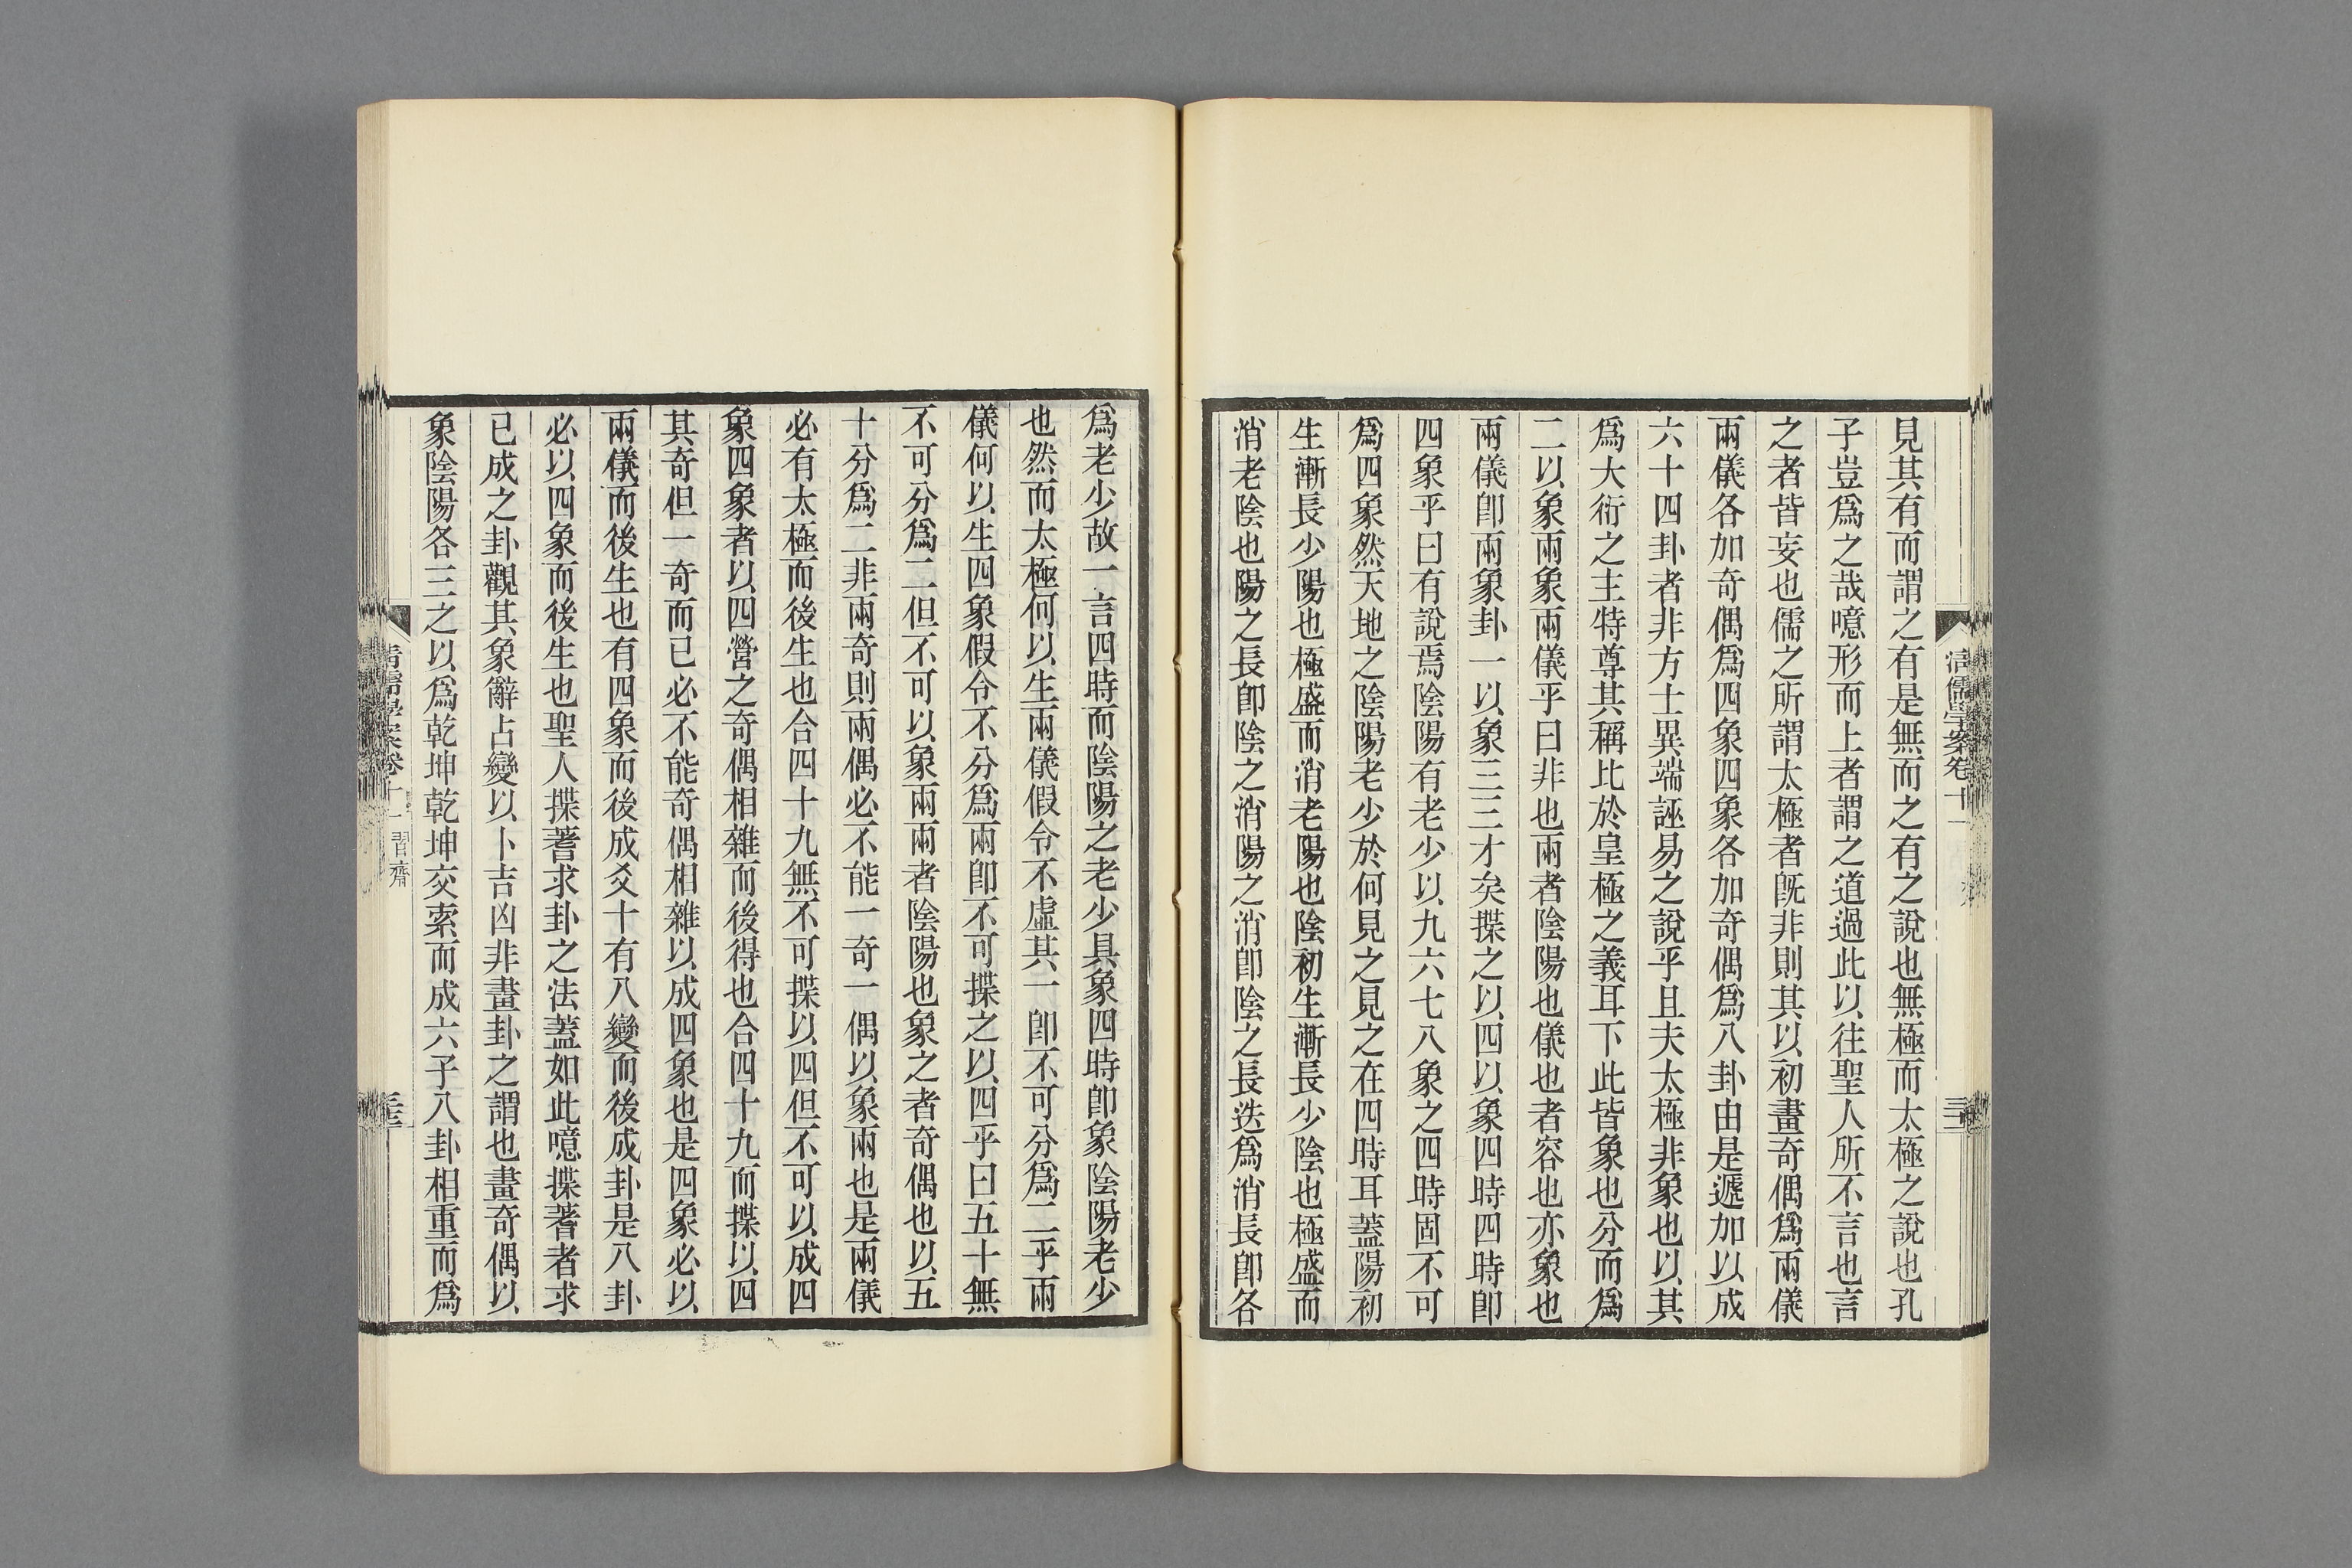 見其有而謂之有是無而之有之說也無極而太極之說也孔
子豈爲之哉噫形而上者謂之道過此以往聖人所不言也言
之者皆妄也儒之所謂太極者旣非則其以初畫奇偶爲兩儀
兩儀各加奇偶爲四象四象各加奇偶爲八卦由是遞加以成
六十四卦者非方士異端誣易之說乎且夫太極非象也以其
爲大衍之主特尊其稱比於皇極之義耳下此皆象也分而爲
二以象兩象兩儀乎曰非也兩者陰陽也儀也者容也亦象也
兩儀卽兩象卦一以象三三才矣揲之以四以象四時四時卽
四象乎曰有說焉陰陽有老少以九六七八象之四時固不可
爲四象然天地之陰陽老少於何見之見之在四時耳蓋陽初
生漸長少陽也極盛而消老陽也陰初生漸長少陰也極盛而
消老陰也陽之長卽陰之消陽之消卽陰之長迭爲消長卽各
清儒學案卷十一
爲老少故一言四時而陰陽之老少具象四時卽象陰陽老少
也然而太極何以生兩儀假令不虛其一卽不可分爲二乎兩
儀何以生四象假令不分爲兩卽不可揲之以四乎曰五十無
不可分爲二但不可以象兩兩者陰陽也象之者奇偶也以五
十分爲二非兩奇則兩偶必不能一奇一偶以象兩也是兩儀
必有太極而後生也合四十九無不可揲以四但不可以成四
象四象者以四營之奇偶相雜而後得也合四十九而揲以四
其奇但一奇而已必不能奇偶相雜以成四象也是四象必以
兩儀而後生也有四象而後成爻十有八變而後成卦是八卦
必以四象而後生也聖人揲蓍求卦之法蓋如此噫揲蓍者求
已成之卦觀其象辭占變以卜吉凶非畫卦之謂也畫奇偶以
象陰陽各三之以爲乾坤乾坤交索而成六子八卦相重而爲
清儒學案卷十一 習齋